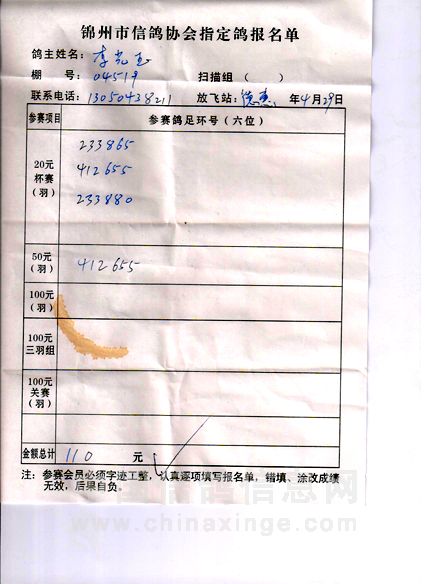 锦州市信鸽协会指定鸽报名单
鸽主姓名：李
棚 号：04519 扫描组（ ）
联系电话：13050438211 放飞站：德惠 年4月29日
参赛项目 参赛鸽足环号（六位）
20元
杯赛
（羽）
233865
412655
233880
50元
（羽）
412655
100元
（羽）
100元
三羽组
100元
关赛
（羽）
金额总计 110 元
注：参赛会员必须字迹工整，认真逐项填写报名单，错填、涂改成绩
无效，后果自负。
信鸽信息网
www.chinaxinge.com